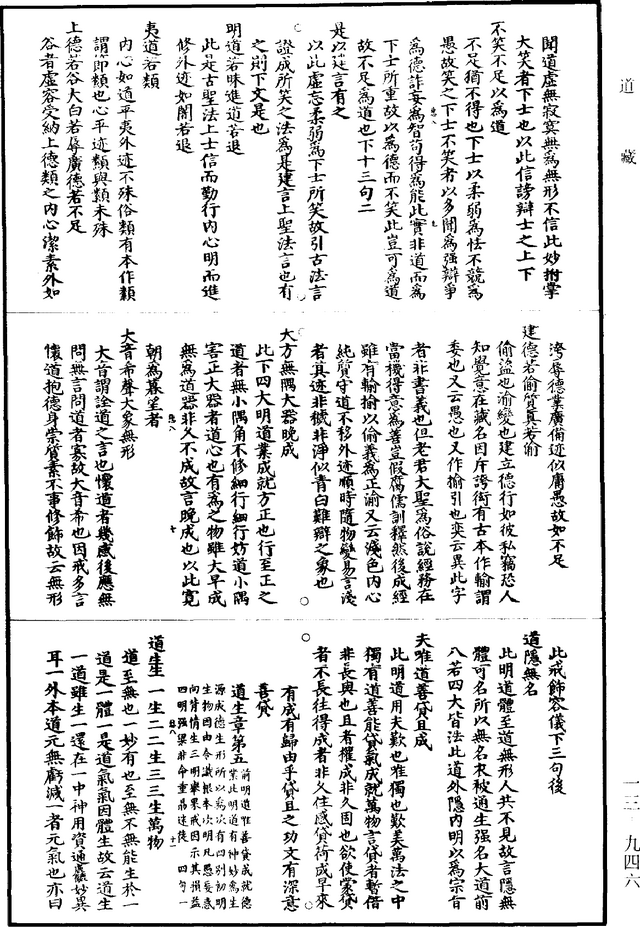 道藏
聞道虛無寂寞無爲無形不信此妙拊掌
大笑者下士也以此信謗辯士之上下
不笑不足以爲道
不足猶不得也下士以柔弱爲怯不競爲
愚故笑之下士不笑者以多聞爲强辯爭
爲德詐妄爲智苟得爲能此實非道而爲
下士所重故以爲德而不笑此豈可爲道
故不足爲道也下十三句二
是以建言有之
以此虛忘柔弱爲下士所笑故引古法言
證成所笑之法爲是建言上聖法言也有
之則下文是也
明道若昧進道若退
此是古聖法上士信而勤行內心明而進
修外迹如闇若退
夷道若類
內心如道平夷外迹不殊俗類有本作類
謂節類也心平迹類與類未殊
上德若谷大白若辱廣德若不足
谷者虛容受納上德類之內心潔素外如
滓辱德業廣備迹似庸愚故如不足
建德若偷質真若渝
偷盜也渝變也建立德行如彼私竊恐人
知覺意在藏名因斥誇衒有古本作輸謂
委也又云愚也又作揄引也奕云異此字
者非書義也但老君大聖爲俗說經務在
當機得意爲善豈假腐儒訓釋然後成經
雖有輸揄以偷義爲正渝又云淺色內心
純質守道不移外迹順時隨物變易言淺
者其迹非穢非淨似青白難辯之象也
大方無隅大器晚成
此下四大明道業成就方正也行至正之
道者無小隅角不修細行細行妨道小隅
害正大器者道心也有爲之物雖大早成
無爲道器非久不成故言晚成也以此寬
朝爲暮望者
大音希聲大象無形
大音謂詮道之言也懷道者幾感後應無
問無言問道者寡故大音希也因戒多言
懷道抱德身崇質素不事修飾故云無形
此戒飾容儀下三句後
道隱無名
此明道體至道無形人共不見故言隱無
體可名所以無名末被適生强名大道前
八若四大皆法此道外隱內明以爲宗旨
夫唯道善貸且成
此明道用夫歎也唯獨也歎美萬法之中
獨有道善能貸氣成就萬物言貸者暫借
非長與也且者權成非久固也欲使蒙貸
者不長往得成者非久住感貸荷成早來
有成有歸由乎貸且之功文有深意
善貸
道生章第五
前明道唯善貸成就德
業此明道有神妙爲生
源成德生形所以爲次有四別初明
生物因由令識根本次明凡愚妄惑
向背情生三明舉果戒因示其損益
四明强梁非命重晶迷徒 四句一
道生一一生二二生三三生萬物
道至無也一妙有也至無不無能生於一
道是一體一是道氣氣因體生故云道生
一道雖生一還在一中神用資通麤妙異
耳一外本道元無虧減一者元氣也亦曰
一三·九四六